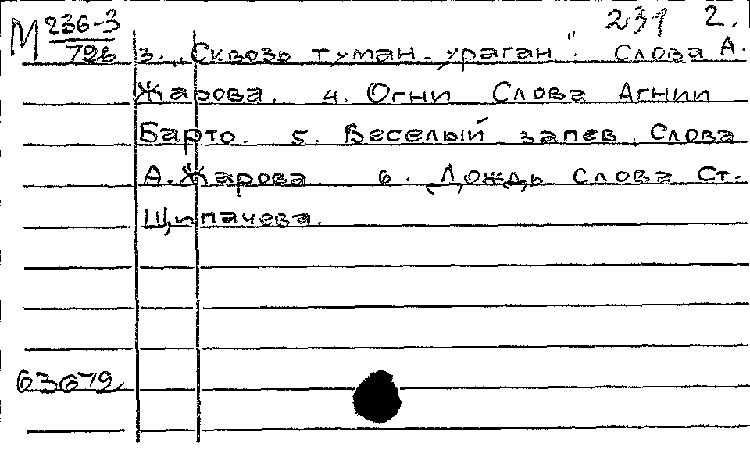 М 236-3
798
231 2.
3. „Сквозь туман-ураган". Слова А.
Жарова. 4. Огни Слова Агнии
Барто. 5. Веселый запев. Слова
А. Жарова 6. Дождь Слова Ст.
Щипачева.
63679